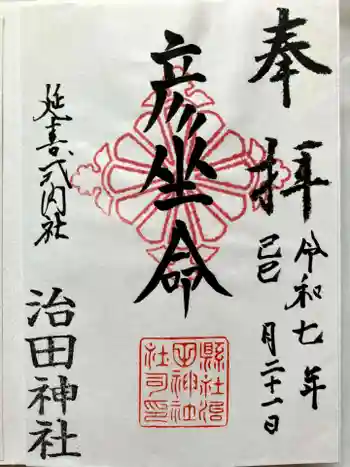 奉拝
令和七年
己巳月二十一日
彦坐命
縣社治
田神社
社司印
延喜式内社
治田神社